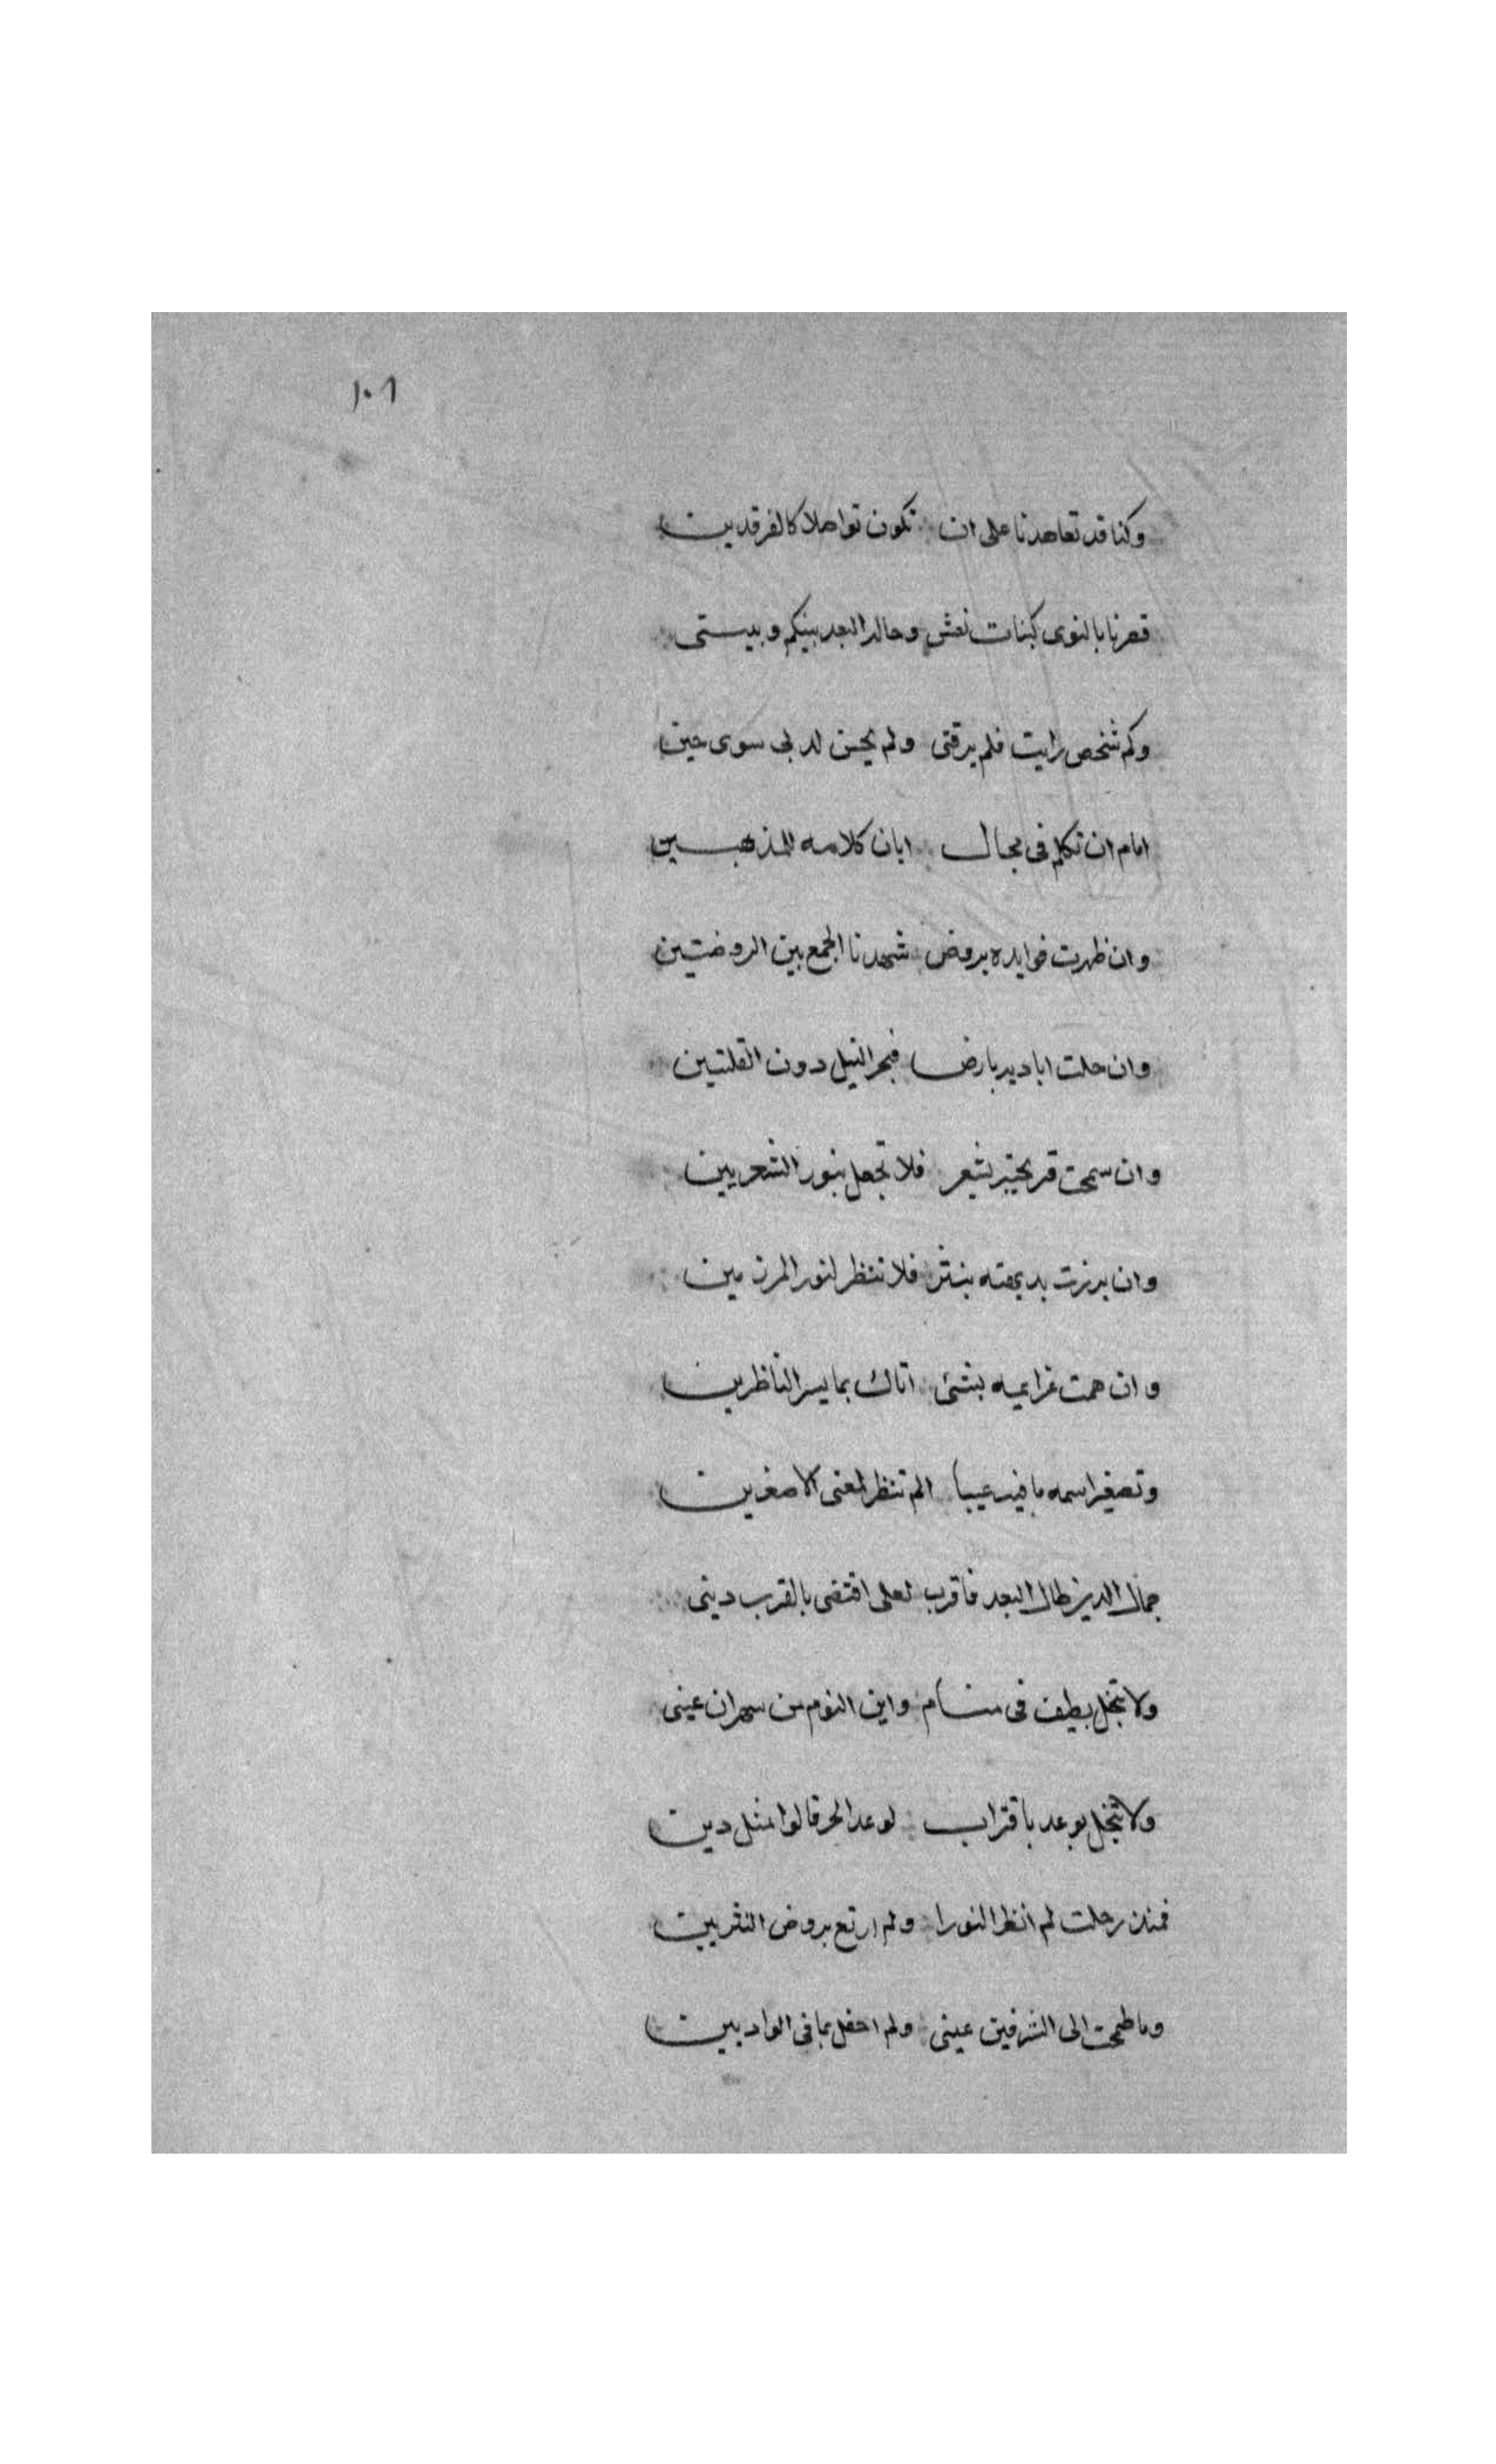 ١٠٦
وكنا قد تعاهدنا على ان نكون تواصلا كالفرقدين
فصرنا بالنوى كبنات نعش وحال البعد بينكم وبيني
وكم شخص رايت فلم يرقنى ولم يحسن لدى سوى حين
امام ان تكلم فى مجال ابان كلامه المذهبين
وان ظهرت فوايده بروض شهدنا الجمع بين الروضتين
وان حلت اياديه بارض فبحر النيل دون القلتين
وان سمحت قريحته بشعر فلا تحفل بنور الشعريين
وان برزت بديهته بنثر فلا تنظر لنور المرزمين
وان همت عزايمه بشئ اتاك بما يسر الناظرين
وتصغير اسمه ما فيه عيبا الم تنظر لمعنى الاصغرين
جمال الدين طال البعد فاقرب لعلى اقتضى بالقرب دينى
ولا تبخل بطيف فى منام واين النوم من سهران عينى
ولا تبخل بوعد باقتراب لوعد الحر قالوا مثل دين
فمنذ رحلت لم انظر لنورا ولم ارتع بروض النثريين
وما طمحت الى الشرفين عينى ولم احفل بما فى الواديين